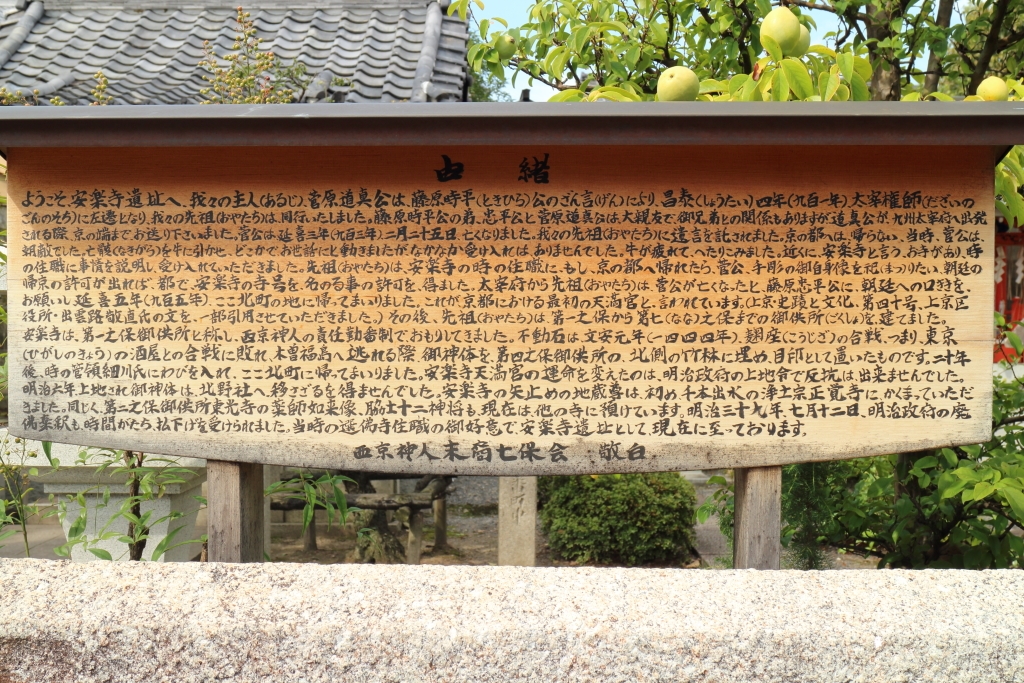 由緒
ようこそ、安楽寺遺址へ、我々の主人(あるじ)、菅原道真公は、藤原時平(ときひら)公のざん言(げん)により、昌泰(しょうたい)四年(九百一年)、太宰権師(だざいの
ごんのそち)に左遷となり、我々の先祖(おやたち)は、同行いたしました。藤原時平公の弟、忠平公と菅原道真公は、大親友で、御兄弟との関係もありますが、道真公が、九州太宰府へ出発
される際、京の端までお送り下さいました。菅公は、延喜三年(九百三年)二月二十五日、亡くなりました。我々の先祖(おやたち)に遺言を託されました。京の都へは、帰らない、当時、菅公は、
朝敵でした。亡骸(なきがら)を牛に引かせ、どこかでお世話にと動きましたがなかなか受け入れは、ありませんでした。牛が疲れて、へたりこみました。近くに、安楽寺と言う、お寺があり、時
の住職に事情を説明し、受け入れていただきました。先祖(おやたち)は、安楽寺の時の住職に、もし、京の都へ帰れたら、菅公、手彫の御自身像を祀(まつ)りたい、朝廷の
帰京の許可が出れば、都で、安楽寺の寺号を名のる事の許可を、得ました。太宰府から先祖(おやたち)は、菅公が亡くなったと、藤原忠平公に、朝廷への口ききを、
お願いし、延喜五年(九百五年)、ここ北町の地に帰ってまいりました。これが、京都における最初の天満宮と、言われています。(上京史蹟と文化、第四十号、上京区
役所・出雲路敬直氏の文を、一部引用させていただきました。)その後、先祖(おやたち)は、第一之保から第七(なな)之保までの御供所(ごくしょ)を建てました。
安楽寺は、第一之保御供所と称し、西京神人の責任勤番制でおもりしてきました。不動石は、文安元年(一四四四年)、麹座(こうじざ)の合戦、つまり、東京
(ひがしのきょう)の酒屋との合戦に敗れ、木曽福島へ逃れる際、御神体を、第四之保御供所の、北側の竹林に埋め、目印として置いたものです。二十年
後、時の管領細川氏にわびを入れて、ここ北町に帰ってまいりました。安楽寺天満宮の運命を変えたのは、明治政府の上地令で反抗は、出来ませんでした。
明治六年上地され御神体は、北野社へ移さざるを得ませんでした。安楽寺の矢止めの地蔵尊は、初め千本出水の浄土宗正覚寺に、かくまっていただ
きました。同じく、第二之保御供所東光寺の薬師如来像、脇士十二神将も、現在は、他の寺に預けています。明治三十九年、七月十二日、明治政府の廃
佛棄釈も、時間がたち、払下げを受けられました。当時の選佛寺住職の御好意で、安楽寺遺址として、現在に至っております。
西京神人末裔七保会 敬白